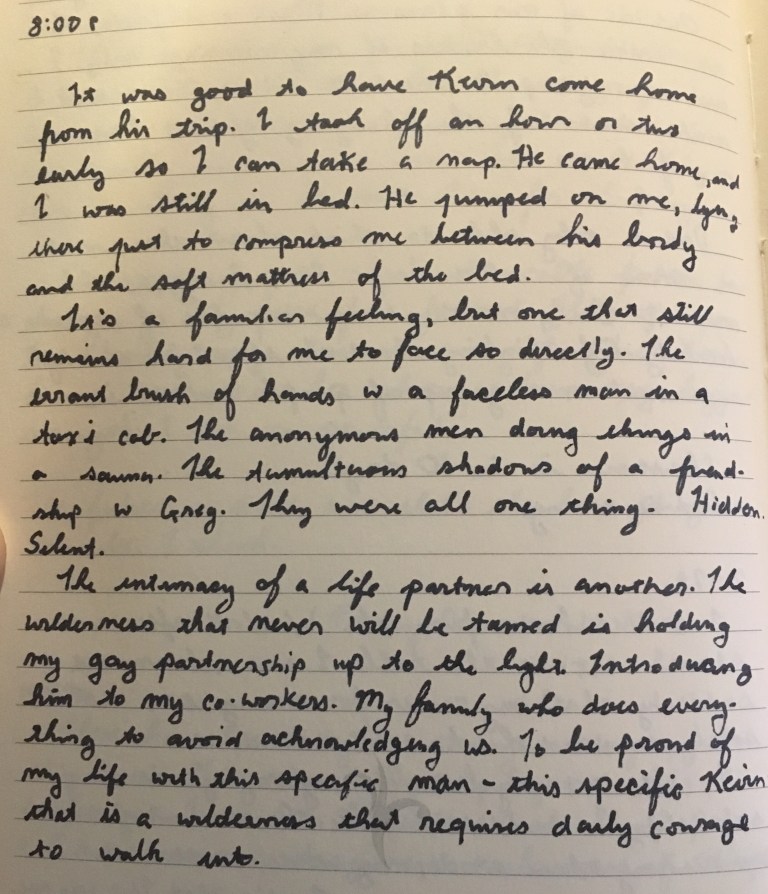 8:00 P
It was good to have Kevin come home
from his trip. I took off an hour or two
early so I can take a nap. He came home, and
I was still in bed. He jumped on me, lying
there just to compress me between his body
and the soft mattress of the bed.
It's a familiar feeling, but one that still
remains hard for me to face so directly. The
errant brush of hands w a faceless man in a
taxi cab. The anonymous men doing things in
a sauna. The tumultuous shadows of a friend-
ship w Greg. They were all one thing. Hidden.
Silent.
The intimacy of a life partner is another. The
wilderness that never will be tamed is holding
my gay partnership up to the light. Introducing
him to my co-workers. My family who does every-
thing to avoid acknowledging us. To be proud of
my life with this specific man - this specific Kevin
that is a wilderness that requires daily courage
to walk into.